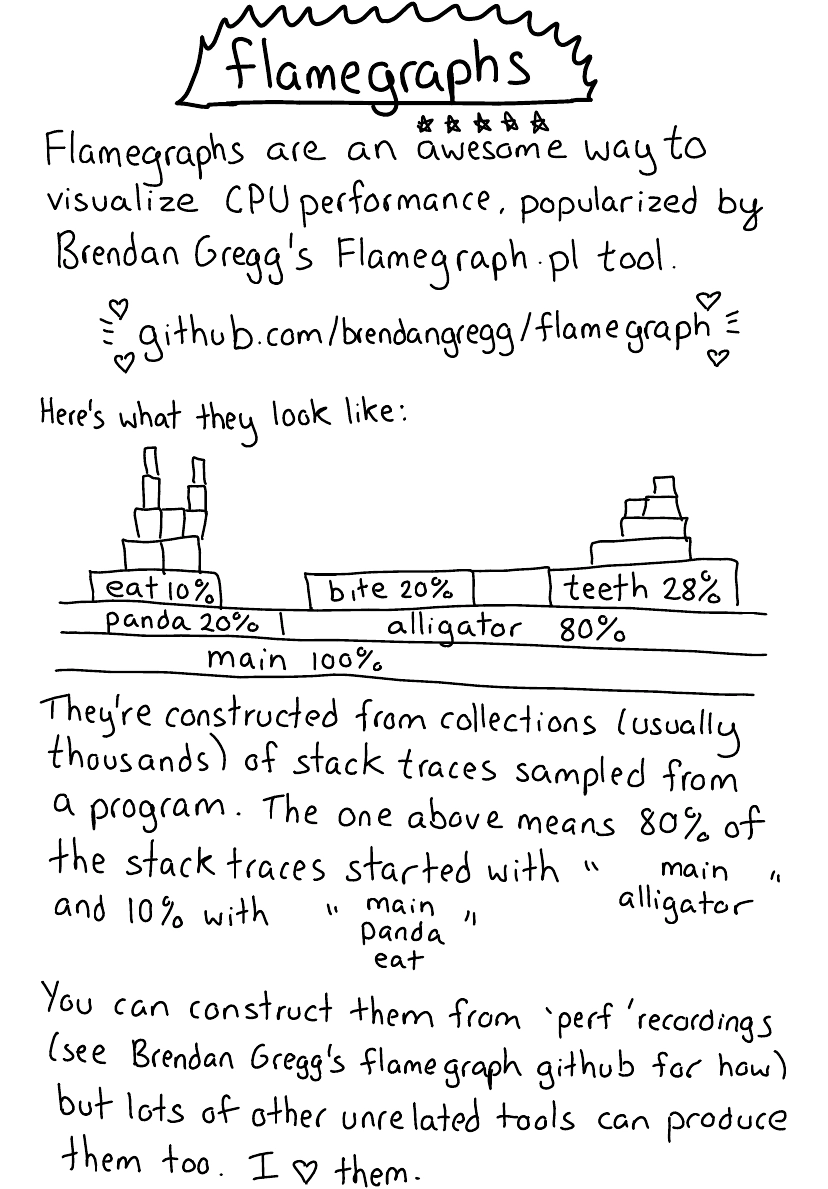 flamegraphs
Flamegraphs are an awesome way to
visualize CPU performance, popularized by
Brendan Gregg's Flamegraph.pl tool.
github.com/brendangregg/flamegraph
Here's what they look like:
eat 10% bite 20% teeth 28%
panda 20% alligator 80%
main 100%
They're constructed from collections (usually
thousands) of stack traces sampled from
a program. The one above means 80% of
the stack traces started with " main "
alligator
and 10% with " main "
panda
eat
You can construct them from 'perf' recordings
(see Brendan Gregg's flamegraph github for how)
but lots of other unrelated tools can produce
them too. I ♡ them.